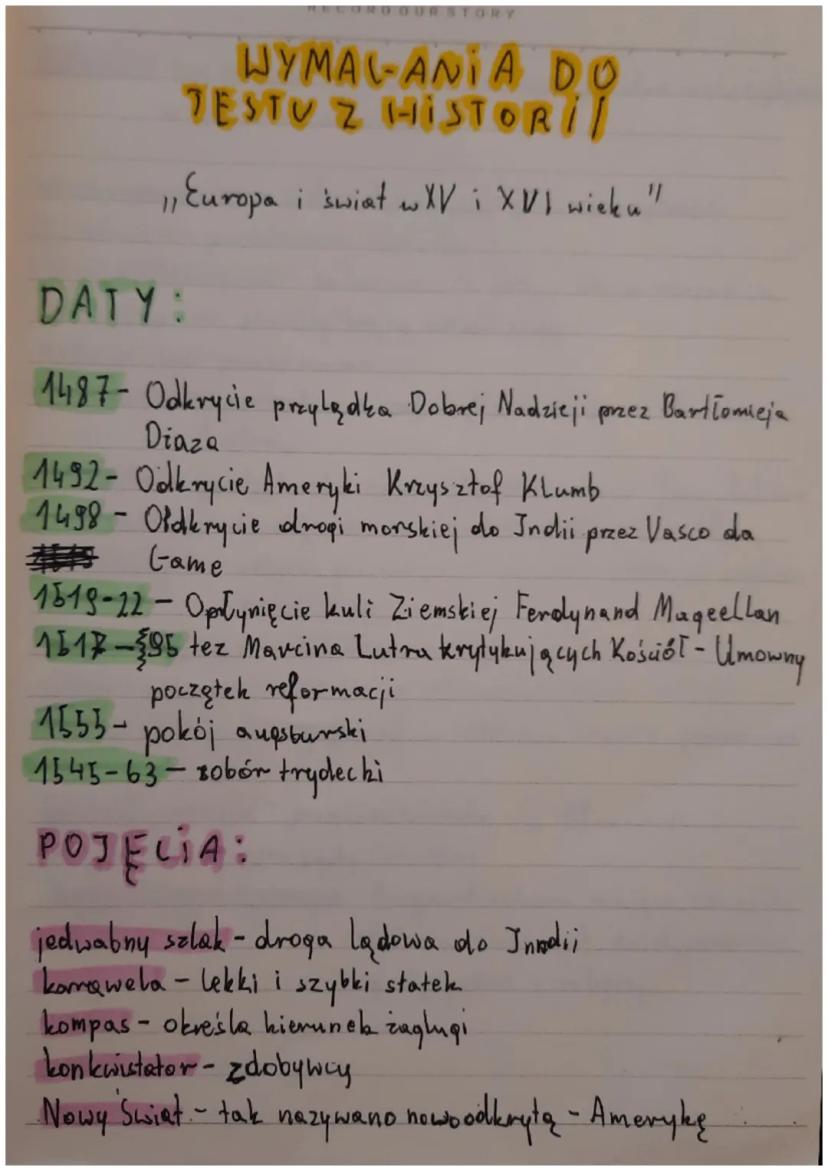 RECORD OUR STORY
WYMAGANIA DO
TESTU Z HISTORII
„Europa i świat w XV i XVI wieku"
DATY:
1487- Odkrycie przylądka Dobrej Nadzieji przez Bartłomieja
Diaza
1492- Odkrycie Ameryki Krzysztof Klumb
1498- Oldkrycie drogi morskiej do Indii przez Vasco da
Game
1519-22 - Opłynięcie kuli Ziemskiej Ferdynand Mageellan
1517 - 95 tez Marcina Lutra krytykujących Kościół - Umowny
początek reformacji
1555- pokój augsburski
1545-63 - sobór trydecki
POJĘCIA:
jedwabny szlak - droga lądowa do Inndii
karawela - lekki i szybki statek
kompas - określa kierunek żaglugi
konkwistator - zdobywcy
Nowy Świat - tak nazywano nowoodkrytą - Amerykę